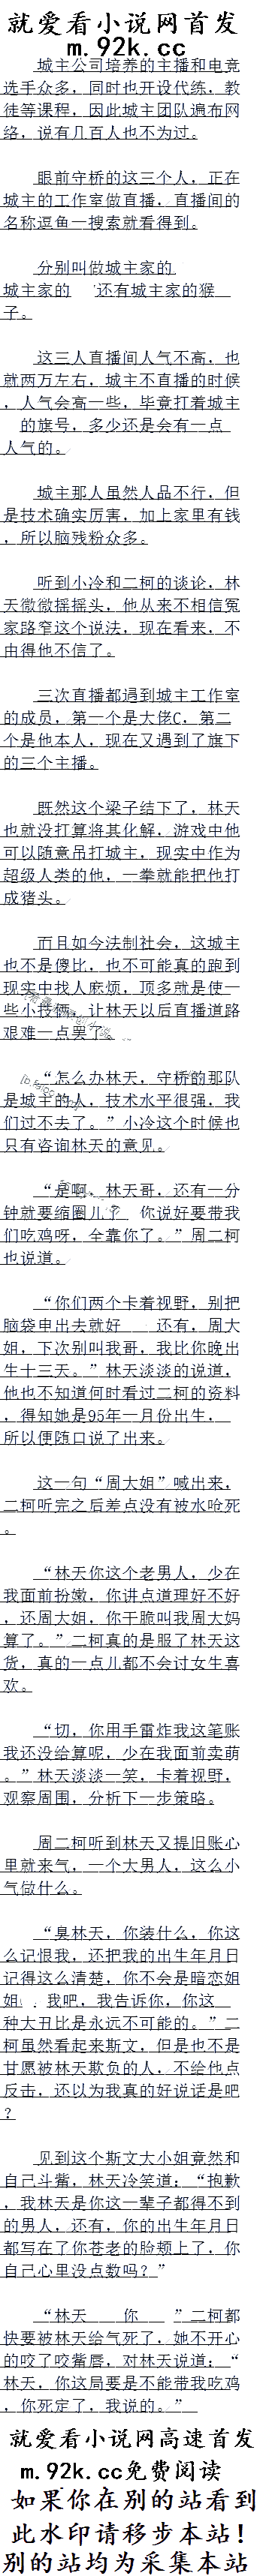 就爱看小说网首发
m.92k.cc
城主公司培养的主播和电竞
选手众多，同时也开设代练，教
徒等课程，因此城主团队遍布网
络，说有几百人也不为过。
眼前守桥的这三个人，正在
城主的工作室做直播，直播间的
名称逗鱼一搜索就看得到。
分别叫做城主家的
城主家的 还有城主家的猴
子。
这三人直播间人气不高，也
就两万左右，城主不直播的时候
，人气会高一些，毕竟打着城主
的旗号，多少还是会有一点
人气的。
城主那人虽然人品不行，但
是技术确实厉害，加上家里有钱
，所以脑残粉众多。
听到小冷和二柯的谈论，林
天微微摇摇头，他从来不相信冤
家路窄这个说法，现在看来，不
由得他不信了。
三次直播都遇到城主工作室
的成员，第一个是大佬C，第二
个是他本人，现在又遇到了旗下
的三个主播。
既然这个梁子结下了，林天
也就没打算将其化解，游戏中他
可以随意吊打城主，现实中作为
超级人类的他，一拳就能把他打
成猪头。
而且如今法制社会，这城主
也不是傻比，也不可能真的跑到
现实中找人麻烦，顶多就是使一
些小技俩，让林天以后直播道路
艰难一点罢了。
“怎么办林天，守桥的那队
是城主的人，技术水平很强，我
们过不去了。”小冷这个时候也
只有咨询林天的意见。
“是啊，林天哥，还有一分
钟就要缩圈儿了 你说好要带我
们吃鸡呀，全靠你了。”周二柯
也说道。
“你们两个卡着视野，别把
脑袋申出去就好 还有，周大
姐，下次别叫我哥，我比你晚出
生十三天。”林天淡淡的说道，
他也不知道何时看过二柯的资料
，得知她是95年一月份出生，
所以便随口说了出来。
这一句“周大姐”喊出来，
二柯听完之后差点没有被水呛死
。
“林天你这个老男人，少在
我面前扮嫩，你讲点道理好不好
，还周大姐，你干脆叫我周大妈
算了。”二柯真的是服了林天这
货，真的一点儿都不会讨女生喜
欢。
“切，你用手雷炸我这笔账
我还没给算呢，少在我面前卖萌
。”林天淡淡一笑，卡着视野，
观察周围，分析下一步策略。
周二柯听到林天又提旧账心
里就来气，一个大男人，这么小
气做什么。
“臭林天，你装什么，你这
么记恨我，还把我的出生年月日
记得这么清楚，你不会是暗恋姐
姐 我吧，我告诉你，你这
种大丑比是永远不可能的。”二
柯虽然看起来斯文，但是也不是
甘愿被林天欺负的人，不给他点
反击，还以为我真的好说话是吧
？
见到这个斯文大小姐竟然和
自己斗嘴，林天冷笑道：“抱歉
，我林天是你这一辈子都得不到
的男人，还有，你的出生年月日
都写在了你苍老的脸颊上了，你
自己心里没点数吗？”
“林天 你 ”二柯都
快要被林天给气死了，她不开心
的咬了咬嘴唇，对林天说道：“
林天，你这局要是不能带我吃鸡
，你死定了，我说的。”
就爱看小说网高速首发
m.92k.cc免费阅读
如果你在别的站看到
此水印请移步本站！
别的站均为采集本站